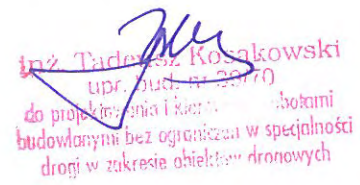 inż. Tadeusz Kosakowski
upr. bud. nr 39/70
do projektowania i kier botami
budowlanymi bez ograniczeń w specjalności
drogi w zakresie obiektów drogowych